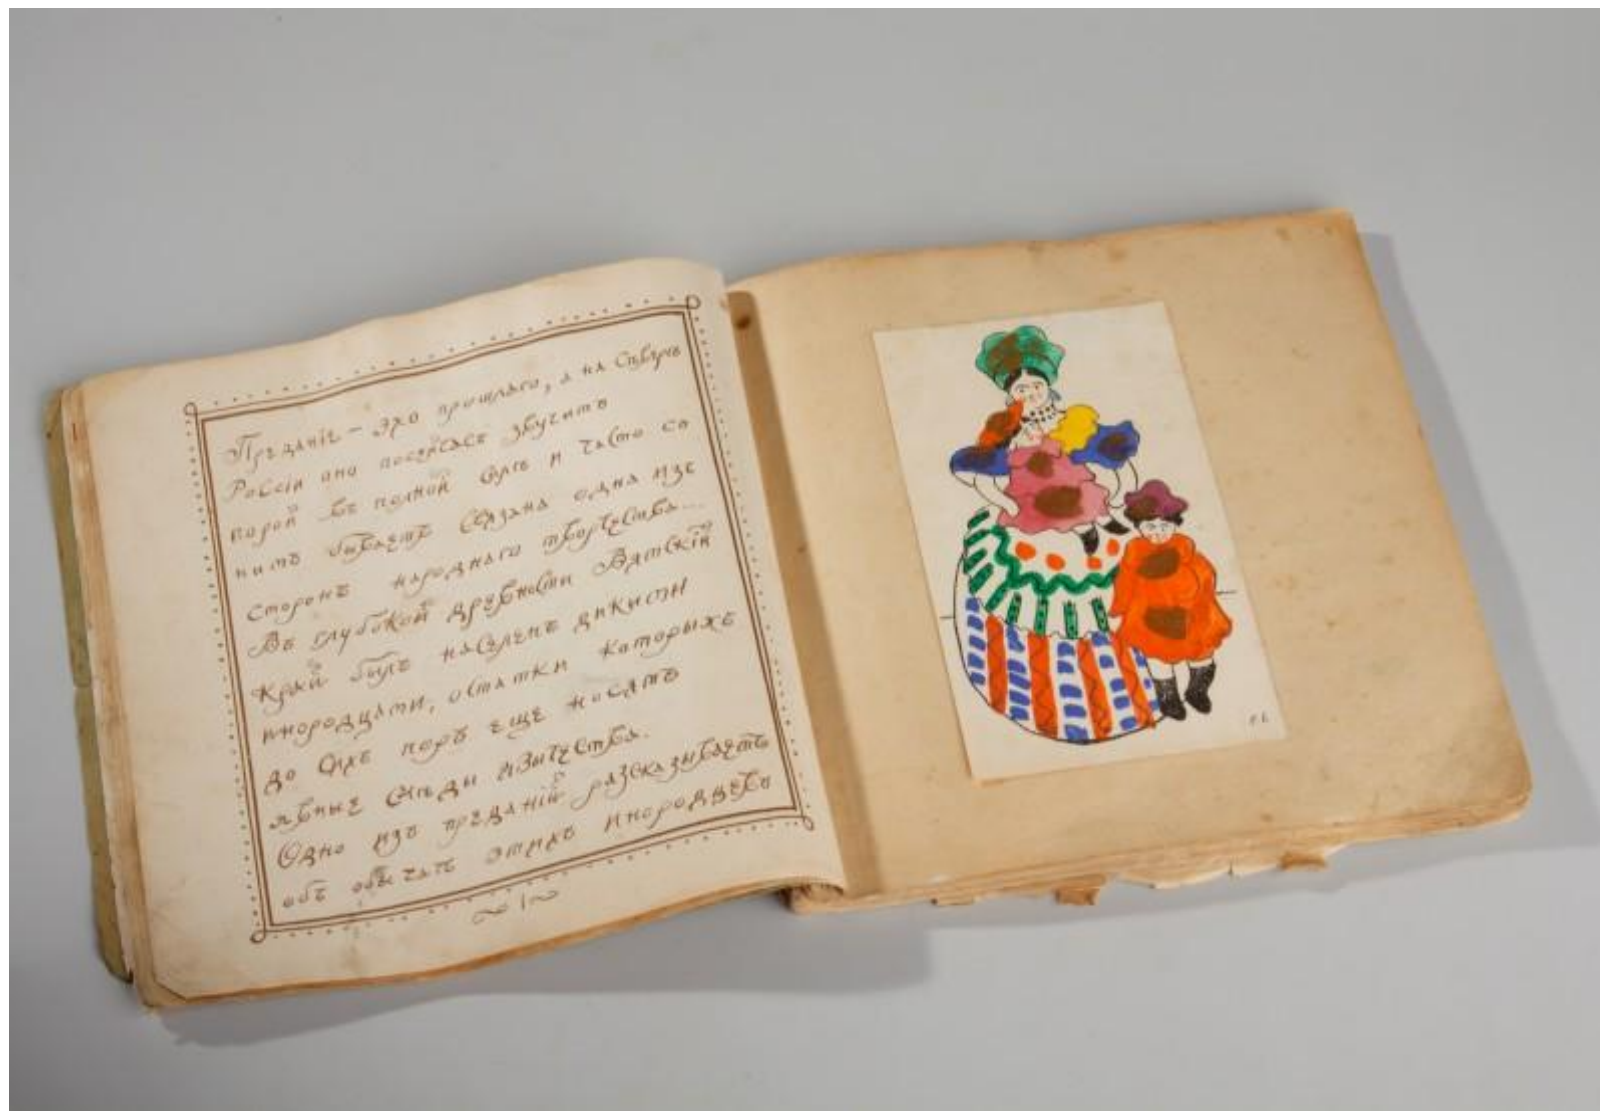 Преданіе – эхо прошлаго, а на Сѣверѣ
Россіи оно посейчасъ звучитъ
порой въ полной силѣ и часто съ
нимъ бываетъ связана одна изъ
сторонъ народнаго творчества...
Въ глубокой древности Вятскій
край былъ населенъ дикими
инородцами, остатки которыхъ
до сихъ поръ еще носятъ
явные слѣды язычества.
Одно изъ преданій разсказываетъ
объ обычаѣ этихъ инородцевъ
~ 1 ~